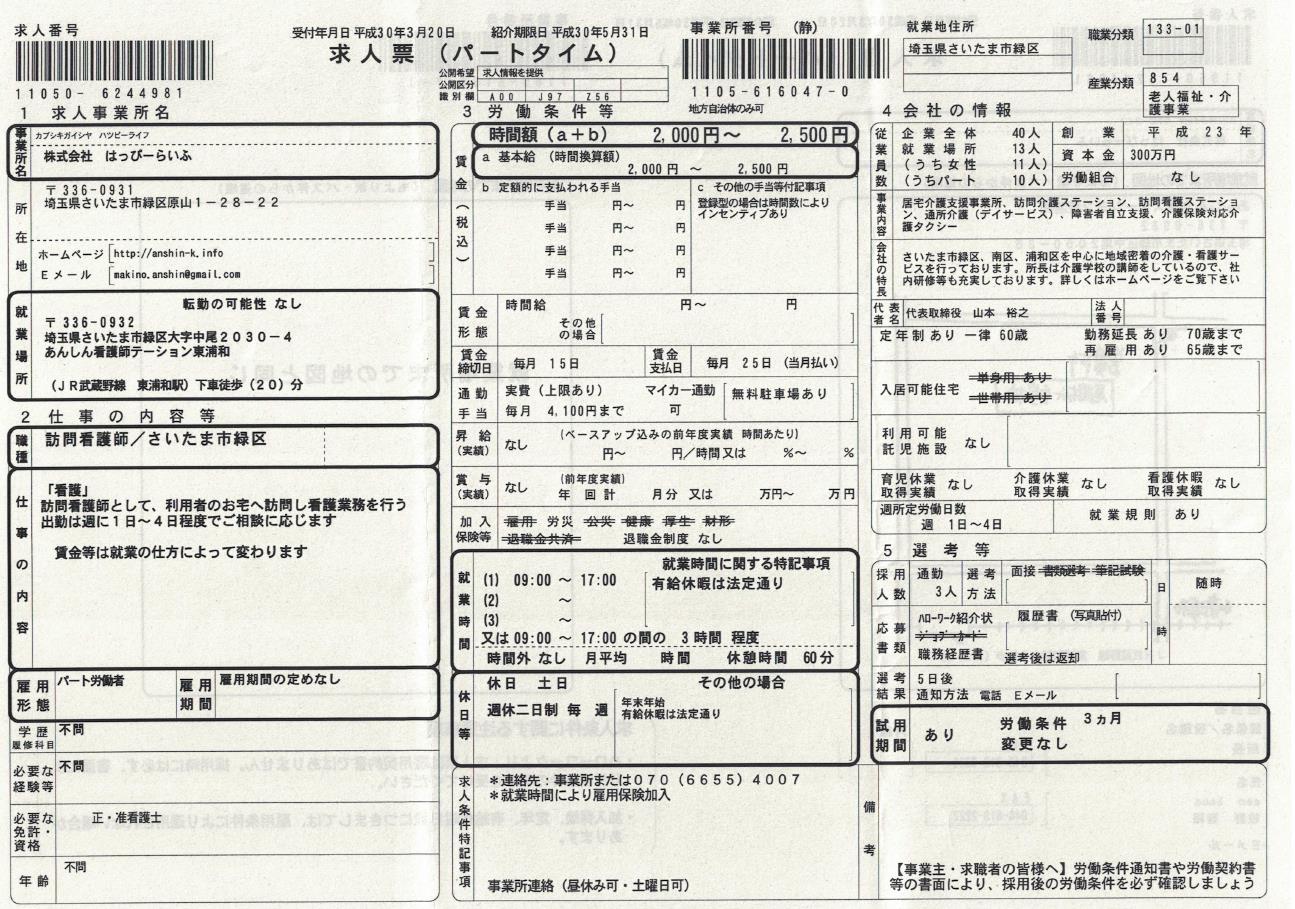 求人番号
11050- 6244981
受付年月日 平成30年3月20日 紹介期限日 平成30年5月31日
求人票（パートタイム）
公開希望 求人情報を提供
公開区分
識別欄 A00 J97 Z56
事業所番号 （静）
1105-616047-0
地方自治体のみ可
就業地住所
埼玉県さいたま市緑区
職業分類 133-01
産業分類 854
老人福祉・介
護事業
1 求人事業所名
事業所名
カブシキガイシヤ ハツピーライフ
株式会社 はっぴーらいふ
所在地
〒336-0931
埼玉県さいたま市緑区原山1－28－22
ホームページ http://anshin-k.info
Eメール makino.anshin@gmail.com
就業場所
転勤の可能性 なし
〒336-0932
埼玉県さいたま市緑区大字中尾2030－4
あんしん看護師テーション東浦和
（JR武蔵野線 東浦和駅）下車徒歩（20）分
2 仕事の内容等
職種
訪問看護師／さいたま市緑区
仕事の内容
「看護」
訪問看護師として、利用者のお宅へ訪問し看護業務を行う
出勤は週に1日～4日程度でご相談に応じます
賃金等は就業の仕方によって変わります
雇用形態 パート労働者
雇用期間 雇用期間の定めなし
学歴 不問
履修科目
必要な経験等 不問
必要な免許・資格 正・准看護士
年齢 不問
3 労働条件等
賃金（税込）
時間額（a＋b） 2,000円～ 2,500円
a 基本給 （時間換算額）
2,000円 ～ 2,500円
b 定額的に支払われる手当
手当 円～ 円
手当 円～ 円
手当 円～ 円
手当 円～ 円
c その他の手当等付記事項
登録型の場合は時間数により
インセンティブあり
賃金形態
時間給 円～ 円
その他の場合
賃金締切日 毎月 15日
賃金支払日 毎月 25日（当月払い）
通勤手当
実費（上限あり） マイカー通勤
毎月 4,100円まで 可
無料駐車場あり
昇給（実績） なし
（ベースアップ込みの前年度実績 時間あたり）
円～ 円／時間又は %～ %
賞与（実績） なし
（前年度実績）
年 回計 月分 又は 万円～ 万円
加入保険等
雇用 労災 公災 健康 厚生 財形
退職金共済 退職金制度 なし
就業時間
就業時間に関する特記事項
(1) 09:00 ～ 17:00 有給休暇は法定通り
(2) ～
(3) ～
又は 09:00 ～ 17:00 の間の 3時間 程度
時間外 なし 月平均 時間 休憩時間 60分
休日等
休日 土日 その他の場合
週休二日制 毎週
年末年始
有給休暇は法定通り
求人条件特記事項
＊連絡先：事業所または070（6655）4007
＊就業時間により雇用保険加入
事業所連絡（昼休み可・土曜日可）
4 会社の情報
従業員数
企業全体 40人
就業場所 13人
（うち女性 11人）
（うちパート 10人）
創業 平成23年
資本金 300万円
労働組合 なし
事業内容
居宅介護支援事業所、訪問介護ステーション、訪問看護ステーショ
ン、通所介護（デイサービス）、障害者自立支援、介護保険対応介
護タクシー
会社の特長
さいたま市緑区、南区、浦和区を中心に地域密着の介護・看護サー
ビスを行っております。所長は介護学校の講師をしているので、社
内研修等も充実しております。詳しくはホームページをご覧下さい
代表者名 代表取締役 山本 裕之
法人番号
定年制 あり 一律 60歳
勤務延長 あり 70歳まで
再雇用 あり 65歳まで
入居可能住宅
単身用 あり
世帯用 あり
利用可能託児施設 なし
育児休業取得実績 なし
介護休業取得実績 なし
看護休暇取得実績 なし
週所定労働日数
週 1日～4日
就業規則 あり
5 選考等
採用人数 通勤 3人
選考方法 面接 書類選考 筆記試験
日時 随時
応募書類
ハローワーク紹介状 履歴書 （写真貼付）
ジョブ・カード
職務経歴書 選考後は返却
選考結果
5日後
通知方法 電話 Eメール
試用期間 あり
労働条件 3ヵ月
変更なし
備考
【事業主・求職者の皆様へ】労働条件通知書や労働契約書
等の書面により、採用後の労働条件を必ず確認しましょう